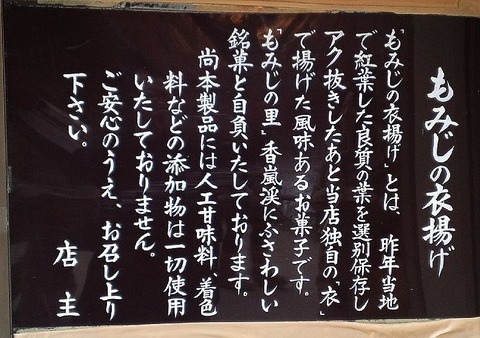 もみじの衣揚げ
「もみじの衣揚げ」とは、昨年当地
で紅葉した良質の葉を選別保存し
アク抜きしたあと当店独自の「衣」
で揚げた風味あるお菓子です。
「もみじの里」香嵐渓にふさわしい
銘菓と自負いたしております。
尚本製品には人工甘味料、着色
料などの添加物は一切使用
いたしておりません。
ご安心のうえ、お召し上り
下さい。
店主